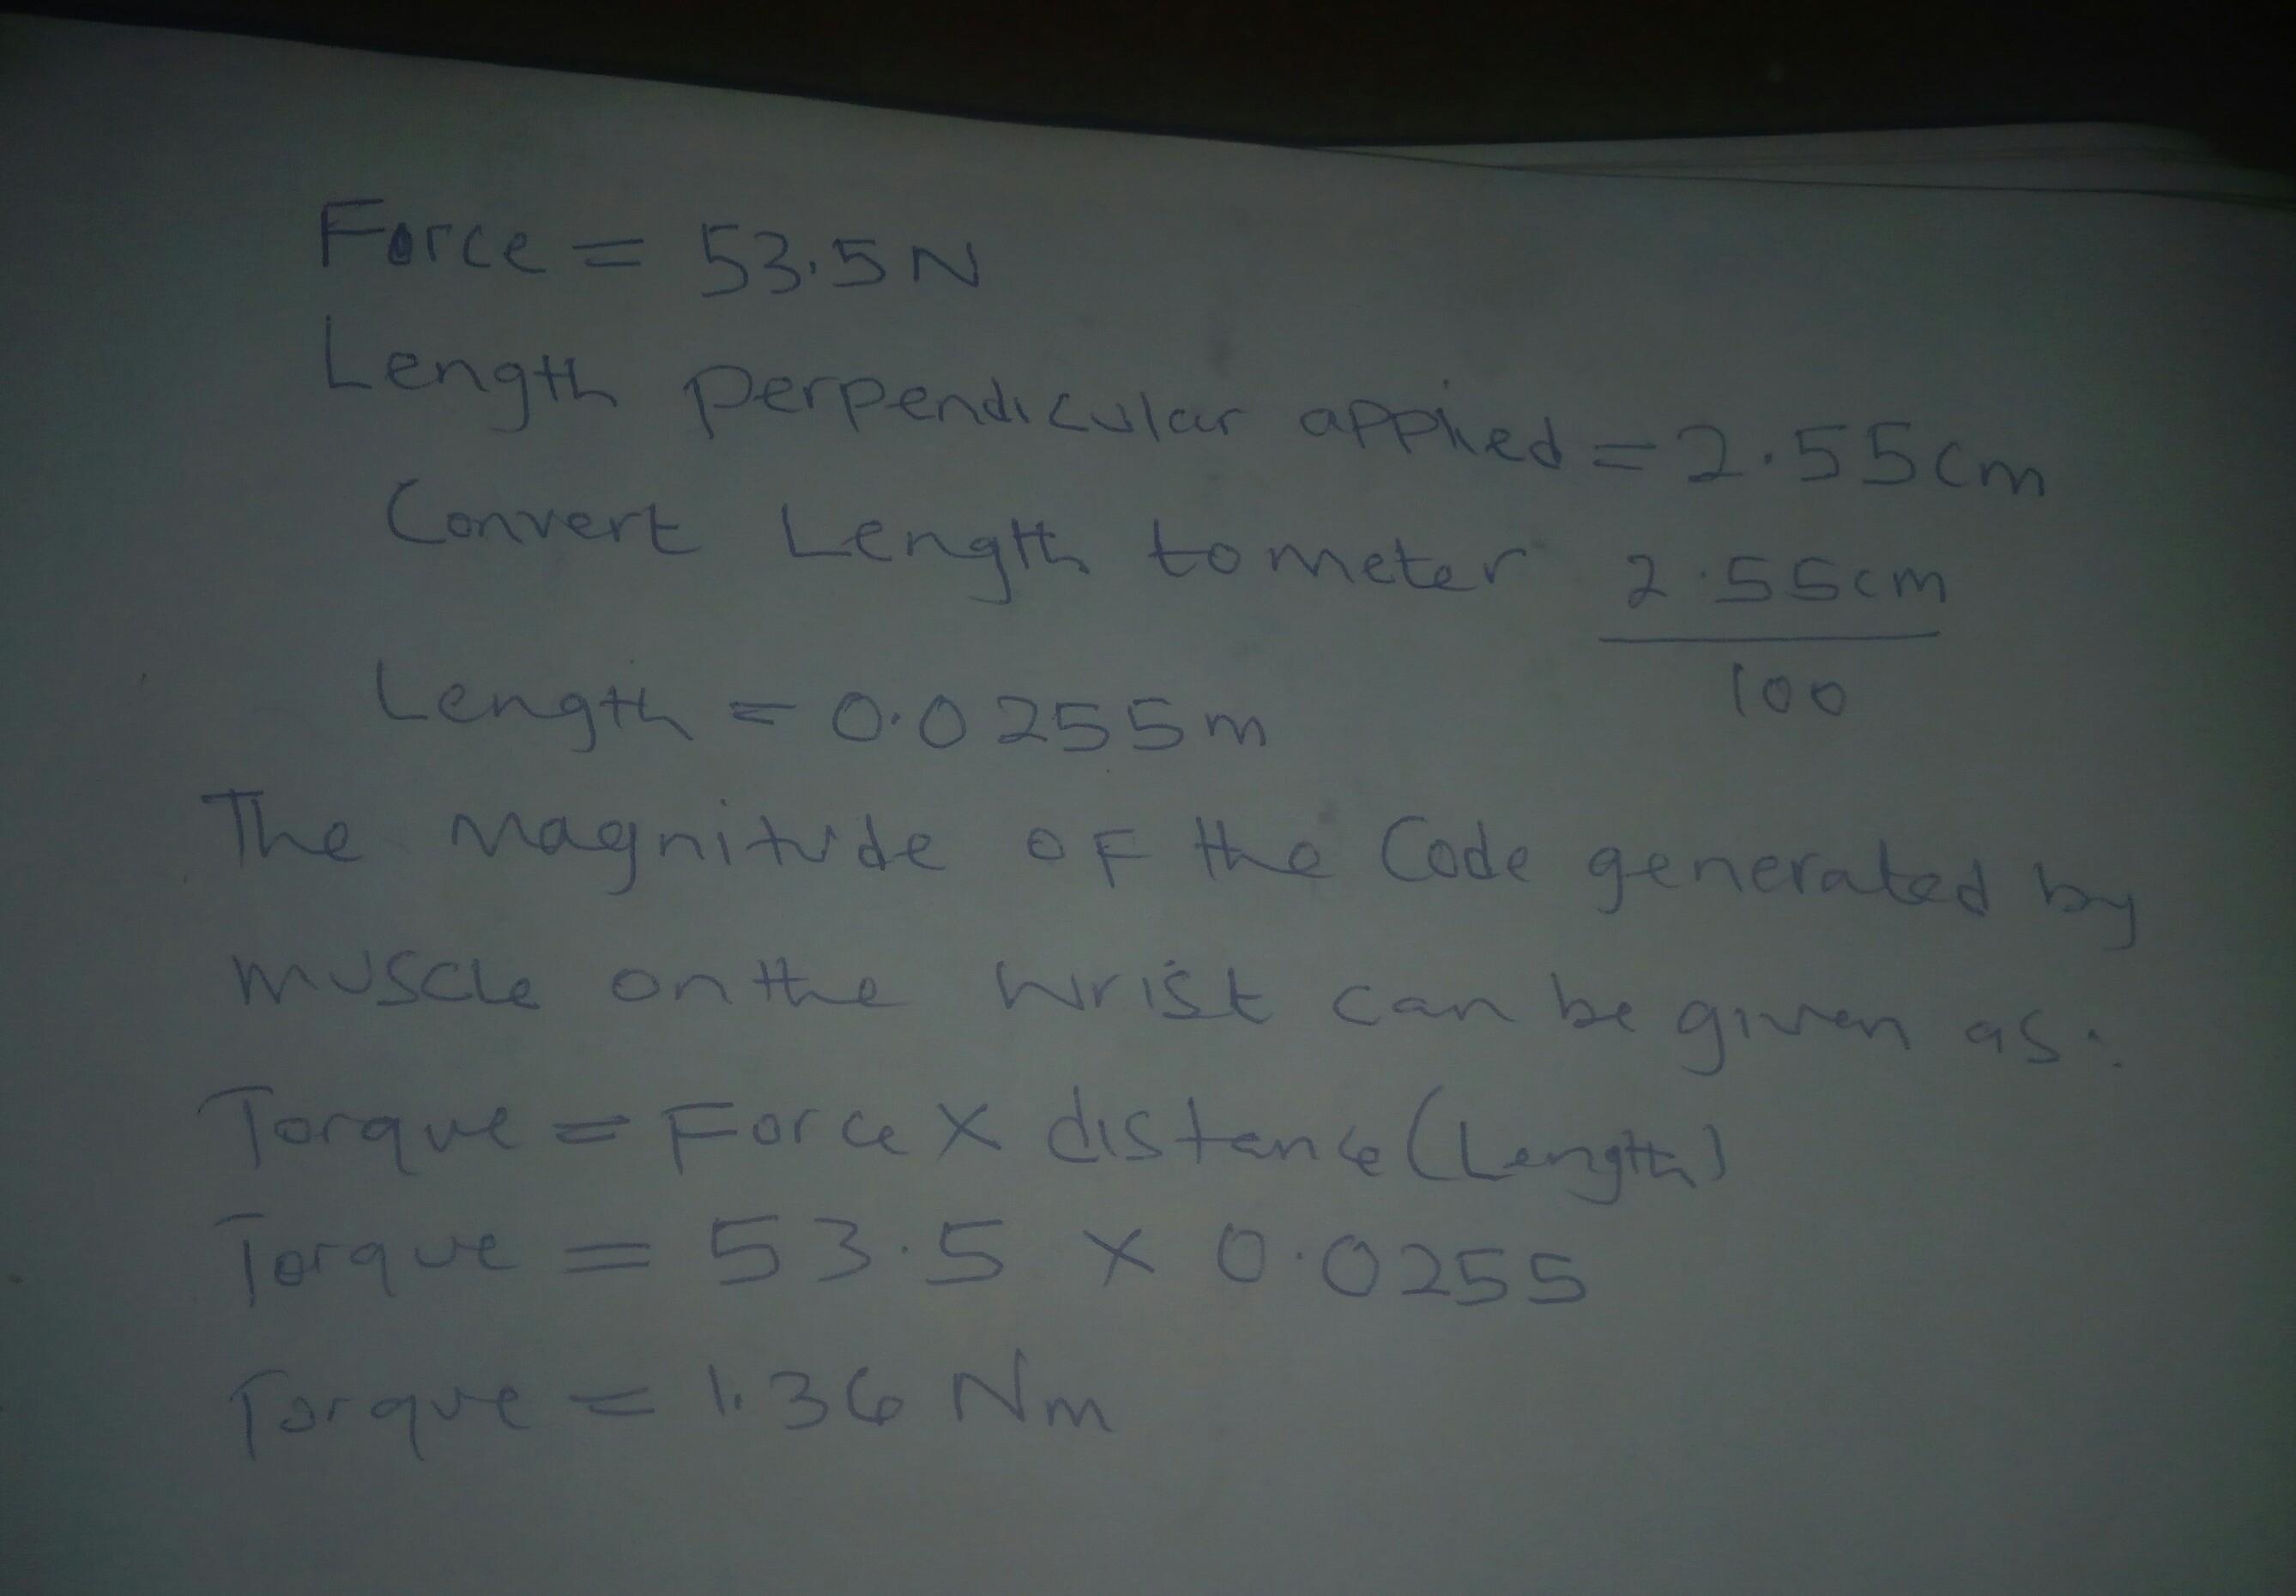 Force = 53.5N
Length perpendicular applied = 2.55cm
Convert Length to meter 2.55cm
100
Length = 0.0255m
The Magnitude of the Code generated by
muscle on the wrist can be given as:
Torque = Force X distance (Length)
Torque = 53.5 X 0.0255
Torque = 1.36 Nm